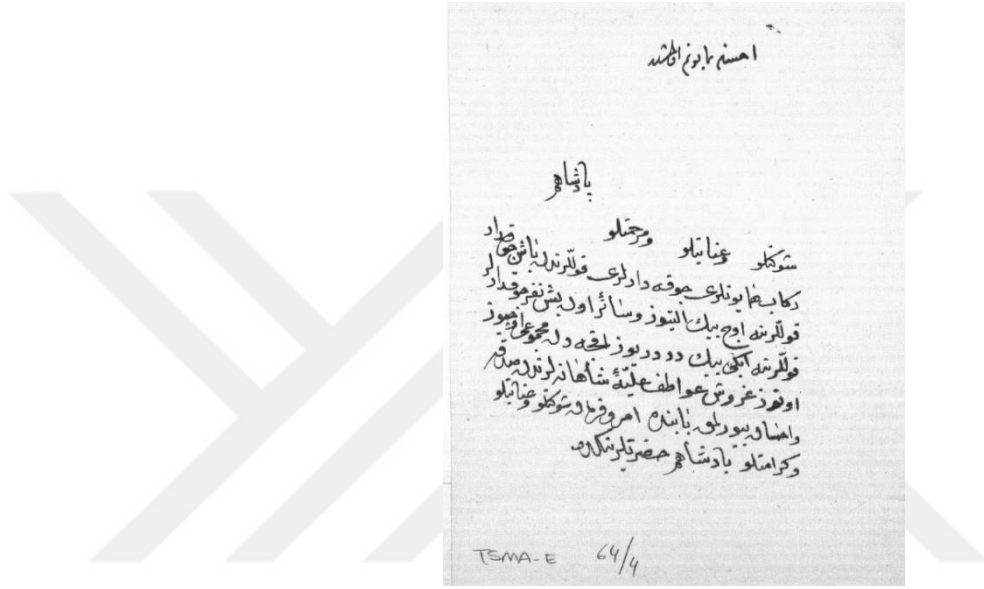 پادشاهم
شوكتلو وعنايتلو ومرحمتلو
ركاب همايونلرى چوقه دارلرى قوللرندن باش چوقدار
قوللرينه اوچ بيك التيوز وسائر اون بش نفر چوقدارلر
قوللرينه ايكى بيك دودريوز اقچه دن مجموعى اوچيوز
اوتوز غروش عواطف عليّۀ شاهانه لرندن صدقه
واحسان بيورلمق بابنده امر وفرمان شوكتلو وعنايتلو
وكرامتلو پادشاهم حضرتلرينكدر
TSMA-E 64/4